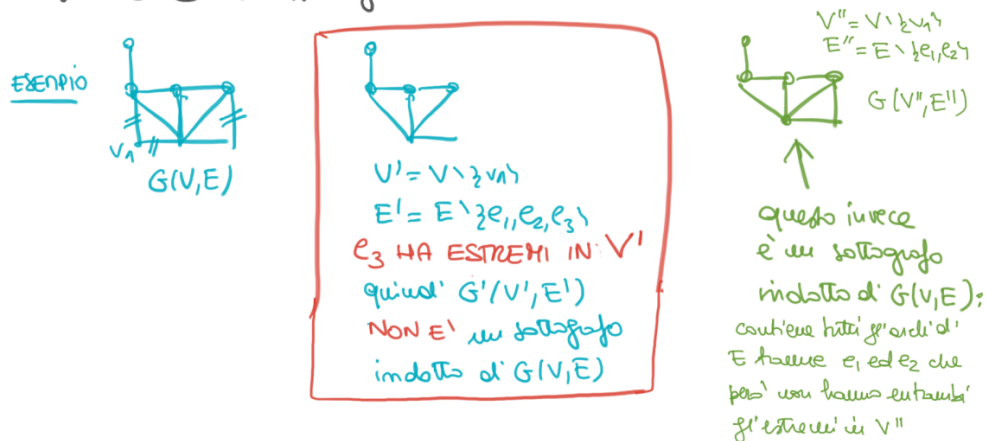 ESEMPIO
V₁
G(V,E)
V' = V \ {v₁}
E' = E \ {e₁, e₂, e₃}
e₃ HA ESTREMI IN V'
quindi G'(V', E')
NON E' un sottografo
indotto di G(V,E)
V'' = V \ {v₁}
E'' = E \ {e₁, e₂}
G(V'', E'')
questo invece
è un sottografo
indotto di G(V,E):
contiene tutti gl'archi di
E tranne e₁ ed e₂ che
però non hanno entrambi
gl'estremi in V''